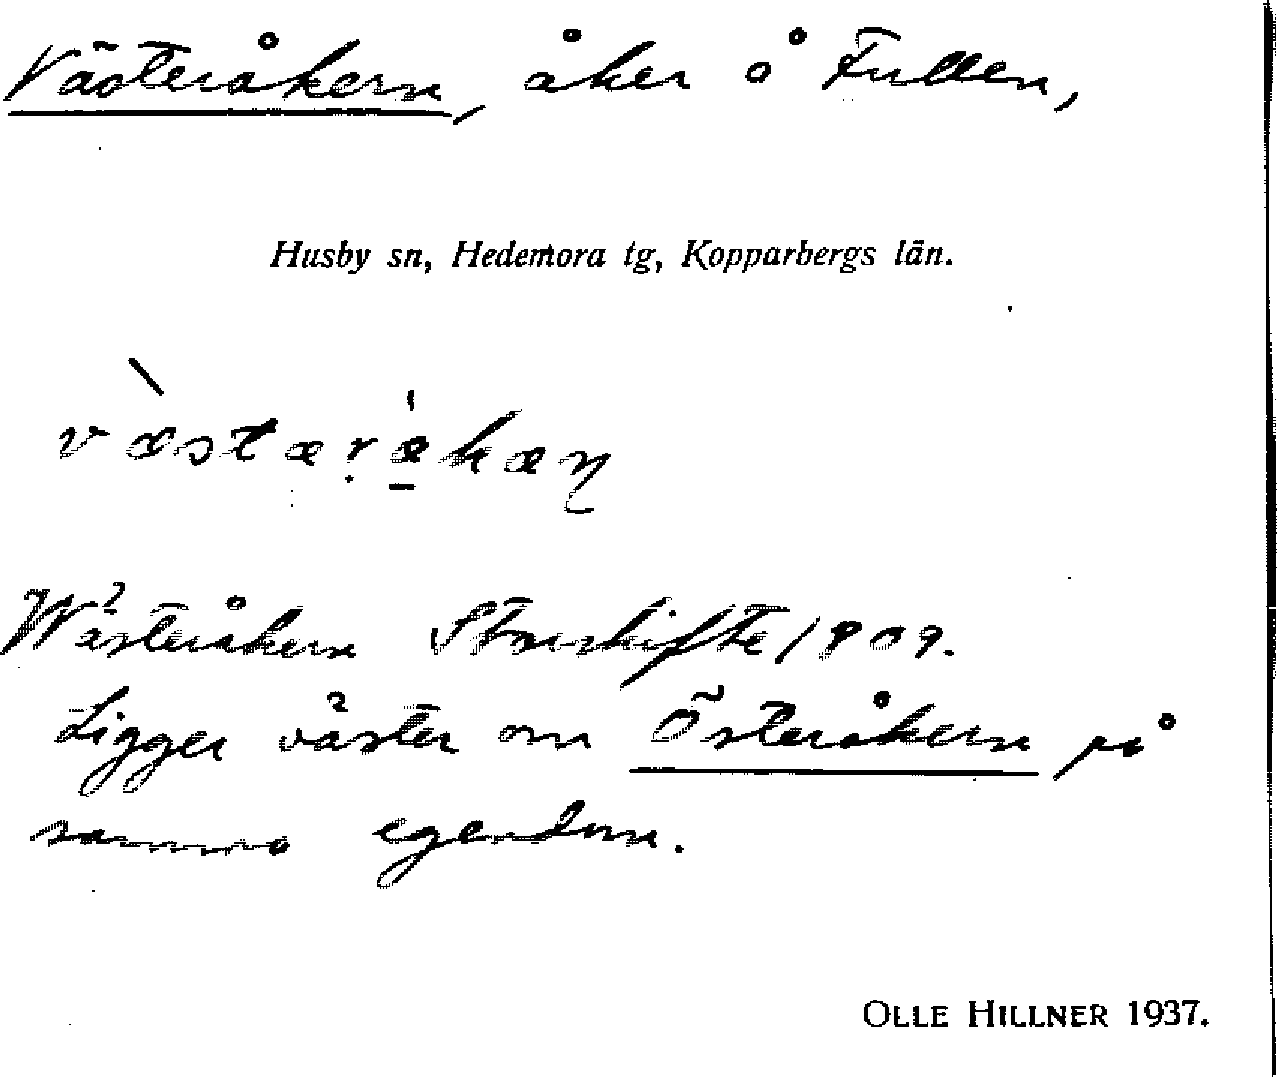 Västeråkern, åker å Fullen,
Husby sn, Hedemora tg, Kopparbergs län.
Wästeråkern Storskifte 1809.
Ligger väster om Österåkern på
samma egendom.
OLLE HILLNER 1937.